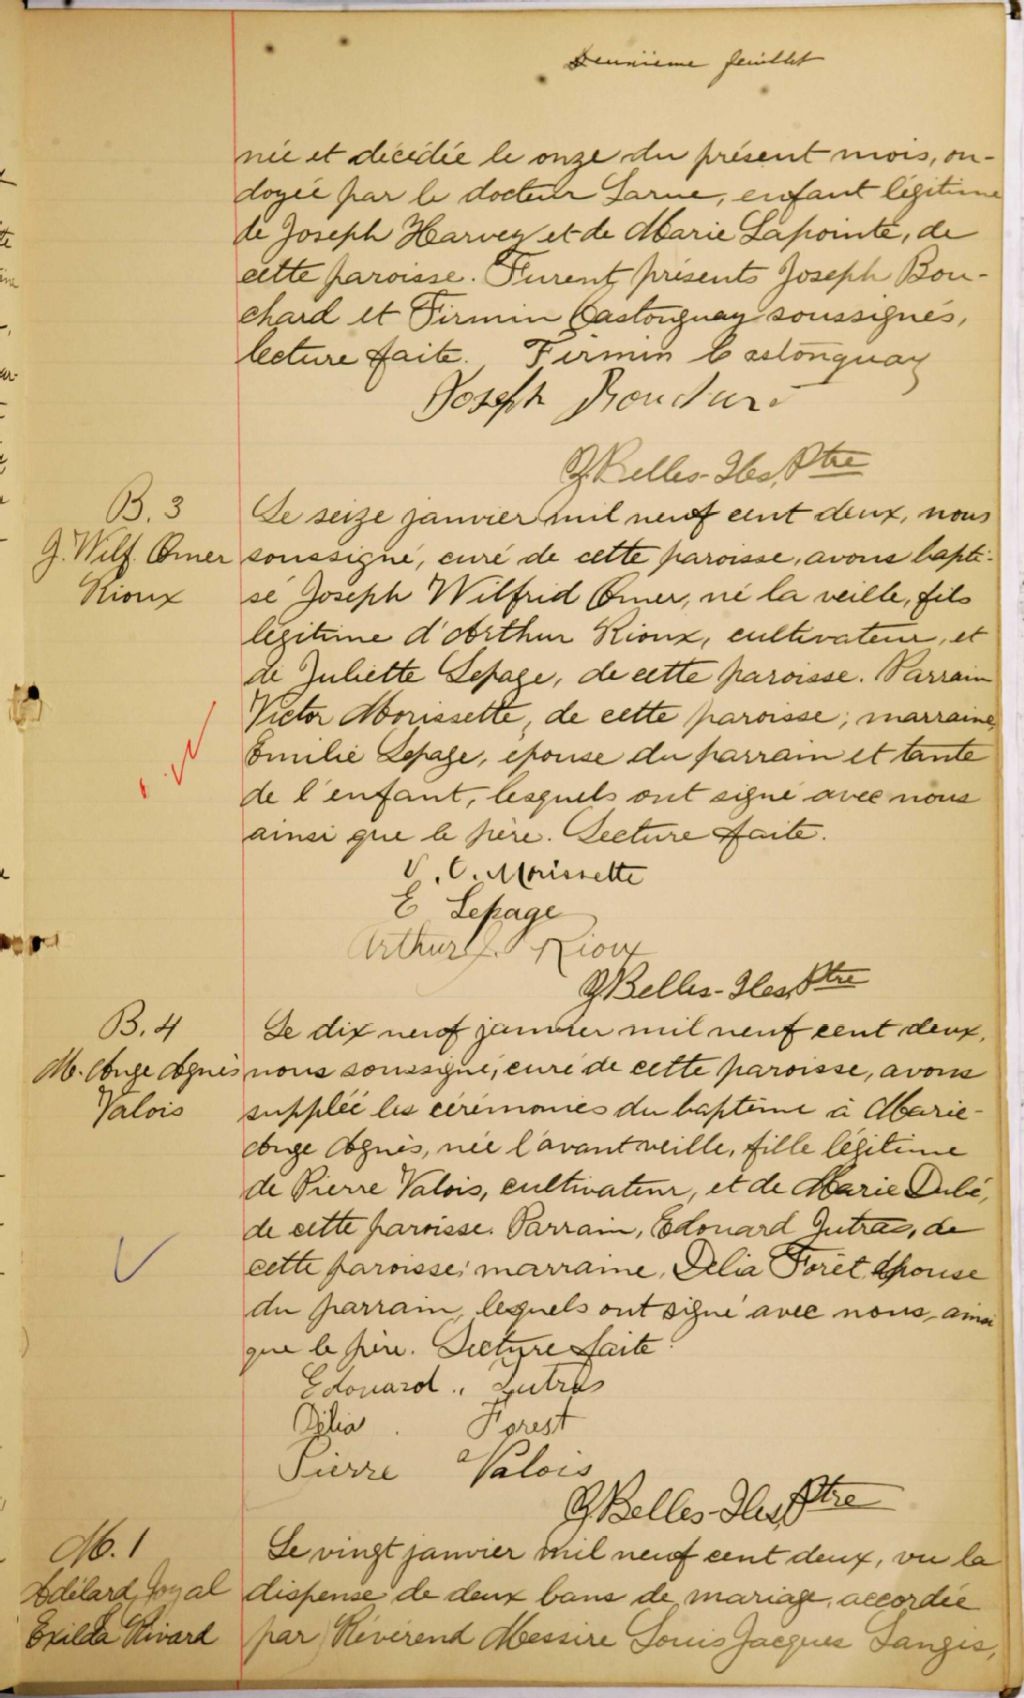 Deuxième feuillet
née et décédée le onze du présent mois, on-
doyée par le docteur Larue, enfant légitime
de Joseph Harvey et de Marie Lapointe, de
cette paroisse. Furent présents Joseph Bou-
chard et Firmin Castonguay soussignés,
lecture faite. Firmin Castonguay
Joseph Bouchard
J Belles-Isles, Ptre
B. 3
J. Wilf. Omer
Rioux
Le seize janvier mil neuf cent deux, nous
soussigné, curé de cette paroisse, avons bapti-
sé Joseph Wilfrid Omer, né la veille, fils
légitime d'Arthur Rioux, cultivateur, et
de Juliette Lepage, de cette paroisse. Parrain
Victor Morissette, de cette paroisse; marraine,
Emilie Lepage, épouse du parrain et tante
de l'enfant, lesquels ont signé avec nous
ainsi que le père. Lecture faite.
V. O. Morissette
E Lepage
Arthur J. Rioux
J Belles-Isles, Ptre
B. 4
M. Ange Agnès
Valois
Le dix neuf janvier mil neuf cent deux,
nous soussigné, curé de cette paroisse, avons
suppléé les cérémonies du baptême à Marie-
Ange Agnès, née l'avant veille, fille légitime
de Pierre Valois, cultivateur, et de Marie Dubé,
de cette paroisse. Parrain, Edouard Jutras, de
cette paroisse; marraine, Delia Forêt, épouse
du parrain, lesquels ont signé avec nous, ainsi
que le père. Lecture faite.
Edouard Jutras
Délia Forest
Pierre Valois
J Belles-Isles, Ptre
M. 1
Adélard Joyal
Exilda Rivard
Le vingt janvier mil neuf cent deux, vu la
dispense de deux bans de mariage, accordée
par Révérend Messire Louis Jacques Langis,